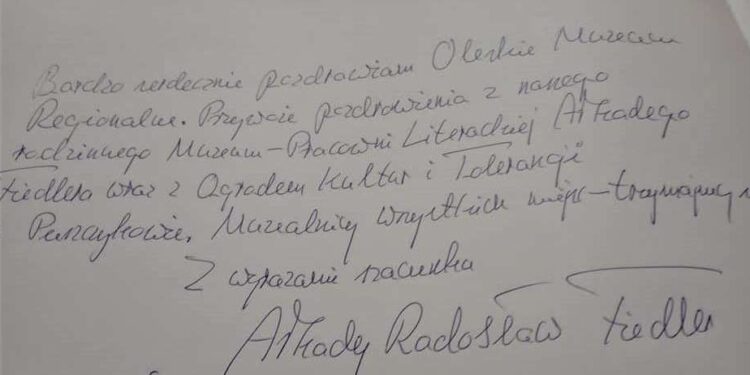 Bardzo serdecznie pozdrawiam Oleskie Muzeum
Regionalne. Przywożę pozdrowienia z naszego
rodzinnego Muzeum - Pracowni Literackiej Arkadego
Fiedlera wraz z Ogrodem Kultur i Tolerancji
Puszczykowie. Muzealnicy wszystkich miejsc - trzymajmy
Z wyrazami szacunku
Arkady Radosław Fiedler